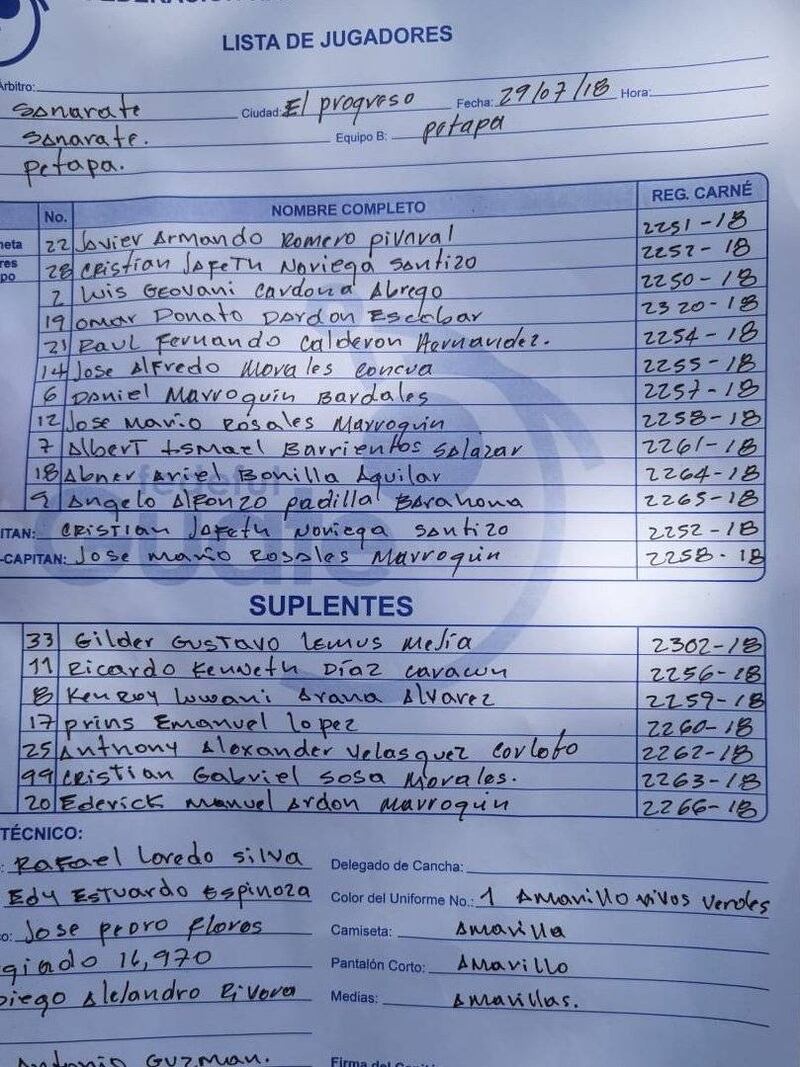 LISTA DE JUGADORES
Árbitro:
Sanarate Ciudad: El progreso Fecha: 29/07/18 Hora:
Sanarate. Equipo B: petapa
petapa.
No. NOMBRE COMPLETO REG. CARNÉ
22 Javier Armando Romero pivaral 2251-18
28 Cristian Jafeth Noriega Santizo 2252-18
2 Luis Geovani Cardona Abrego 2250-18
19 Omar Donato Dardon Escobar 2320-18
21 Raul Fernando Calderon Hernandez. 2254-18
14 Jose Alfredo Morales Concua 2255-18
6 Daniel Marroquin Bardales 2257-18
12 Jose Mario Rosales Marroquin 2258-18
7 Albert Ismael Barrientos Salazar 2261-18
18 Abner Ariel Bonilla Aguilar 2264-18
9 Angelo Alfonzo padilla Barahona 2265-18
ITAN: Cristian Jafeth Noriega Santizo 2252-18
-CAPITAN: Jose Mario Rosales Marroquin 2258-18
SUPLENTES
33 Gilder Gustavo Lemus Mejía 2302-18
11 Ricardo Kenneth Díaz 2256-18
8 Kenroy Arana Alvarez 2259-18
17 prins Emanuel lopez 2260-18
25 Anthony Alexander Velasquez 2262-18
99 Cristian Gabriel Sosa Morales. 2263-18
20 Ederick Manuel Ardon Marroquin 2266-18
TÉCNICO:
Rafael Loredo Silva Delegado de Cancha:
Edy Estuardo Espinoza Color del Uniforme No.: 1 Amarillo vivos verdes
Jose pedro flores Camiseta: Amarilla
giado 16,970 Pantalón Corto: Amarillo
Diego Alejandro Rivera Medias: Amarillas.
Antonio Guzman.